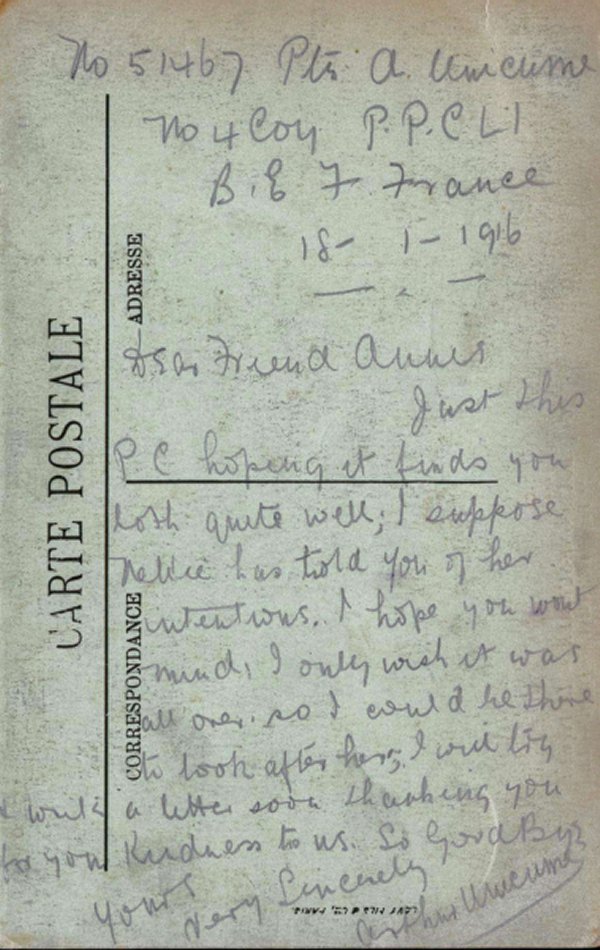 No 51467 Pte A. Unicume
No 4 Coy P.P.C L I
B.E F. France
18- 1-1916
Dear Friend Annes
Just this
P C hoping it finds you
both quite well; I suppose
Nellie has told you of her
intentions. I hope you wont
mind, I only wish it was
all over. so I could be there
to look after her, I will try
& write a letter soon thanking you
for your Kindness to us. So Good Bye
Yours
very Sincerely
Arthur Unicume
CARTE POSTALE
ADRESSE
CORRESPONDANCE